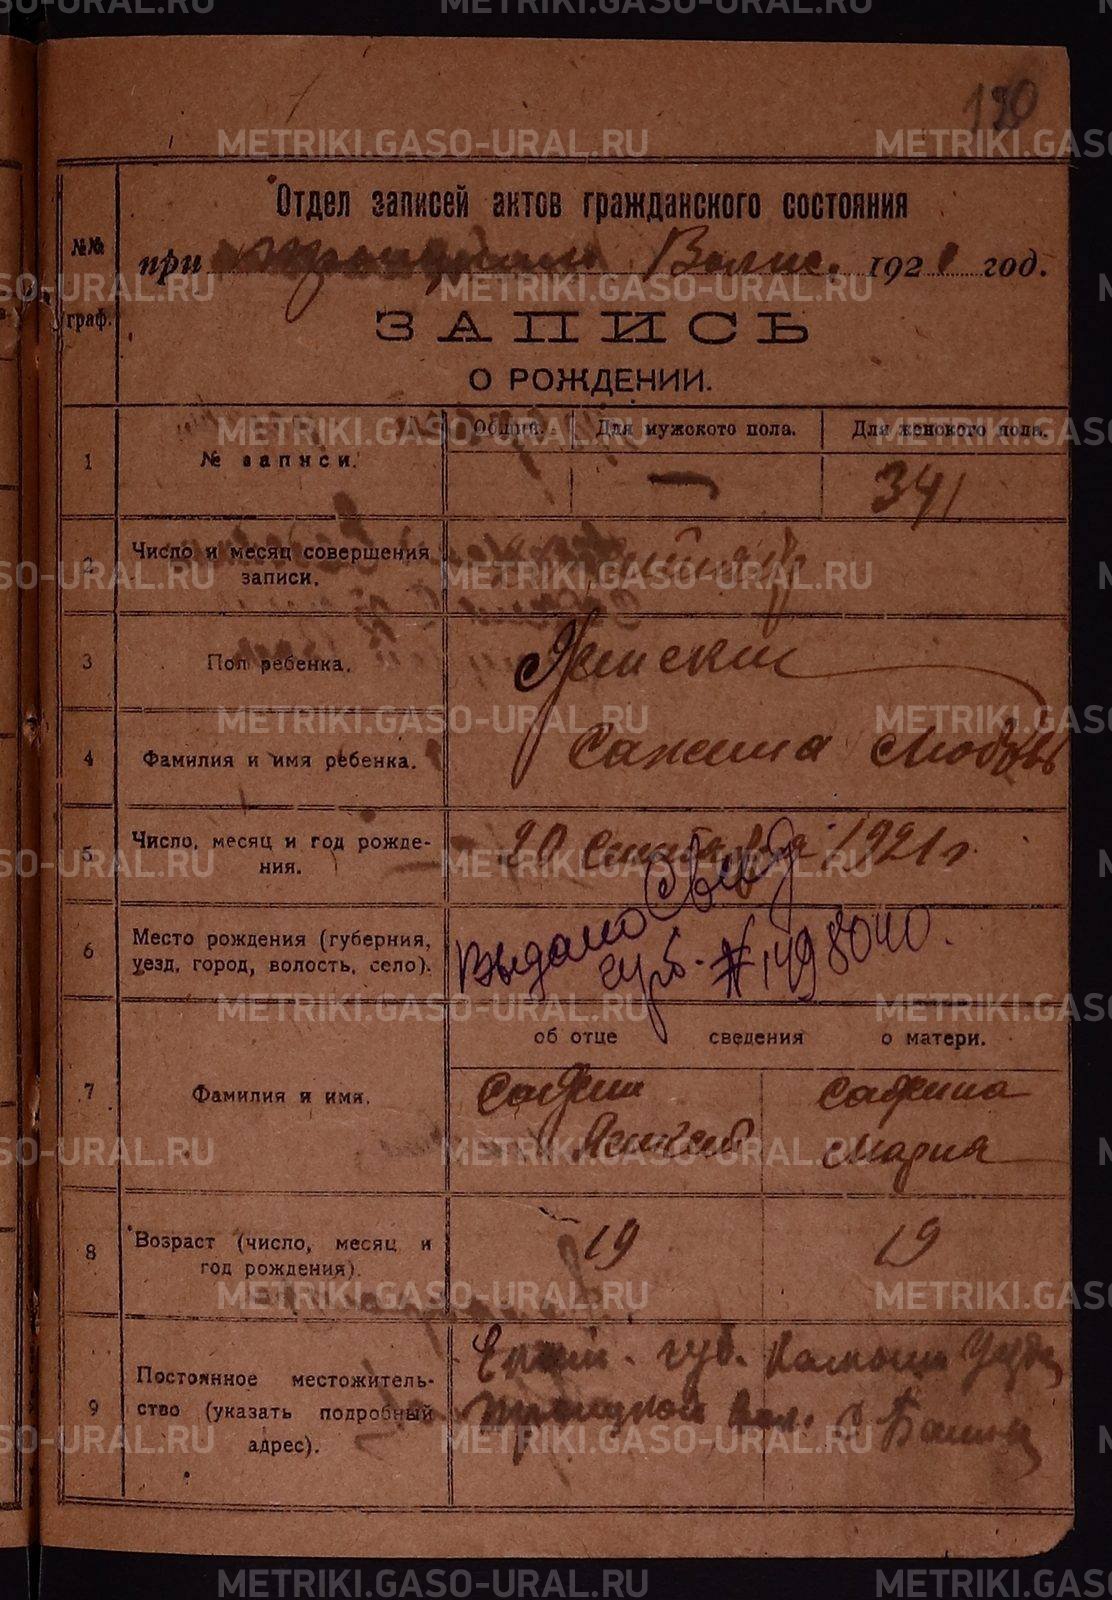 120
Отдел записей актов гражданского состояния
при Троицком Волис. 1921 год.
№№ граф.
ЗАПИСЬ
О РОЖДЕНИИ.
1 № записи. Общий. Для мужского пола. Для женского пола.
— 341
2 Число и месяц совершения
записи.
3 Пол ребенка. Женский
4 Фамилия и имя ребенка. Сажина Любовь
5 Число, месяц и год рожде-
ния. 20 Сентября 1921 г.
6 Место рождения (губерния,
уезд, город, волость, село).
Выдано Свид
№ 1498040.
об отце сведения о матери.
7 Фамилия и имя.
Сажин Сажина
Алексей Мария
8 Возраст (число, месяц и
год рождения). 19 19
9 Постоянное местожитель-
ство (указать подробный
адрес).
губ. Камышл Уезда
Троицкой вол. С
METRIKI.GASO-URAL.RU